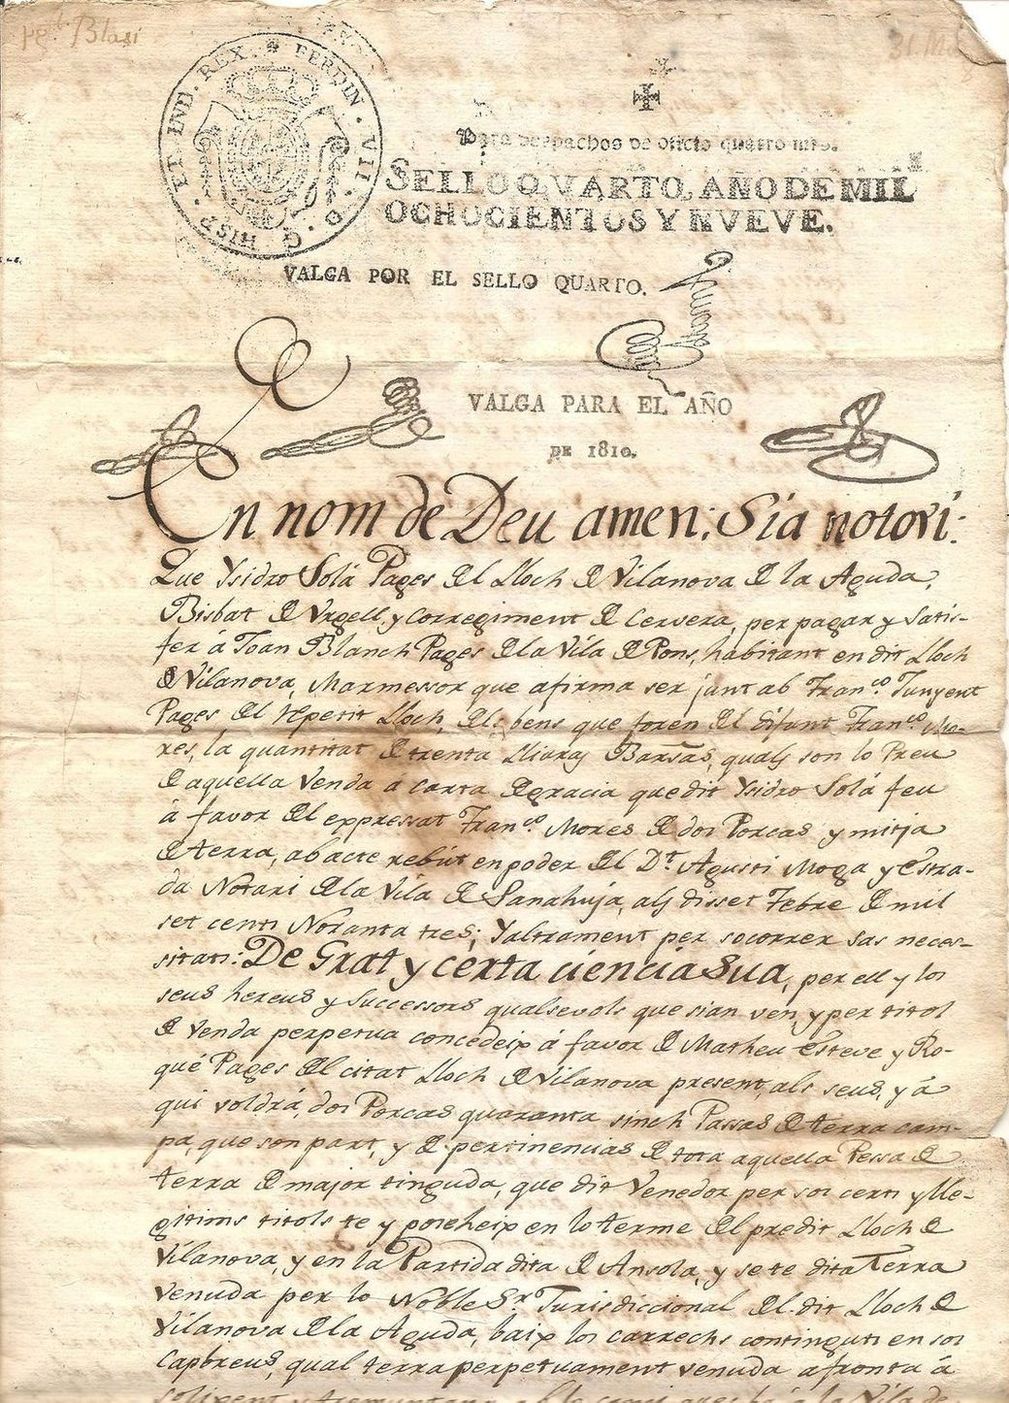 pg.l Blasi
FERDIN. VII. D. G. HISP. ET IND. REX.
Para despachos de oficio quatro mrs.
SELLO QVARTO, AÑO DE MIL
OCHOCIENTOS Y NVEVE.
VALGA POR EL SELLO QUARTO.
VALGA PARA EL AÑO
DE 1810.
En nom de Deu amen: Sia notori:
Que Ysidro Solá Pages del Lloch de Vilanova de la Aguda,
Bisbat de Urgell, y corregiment de Cervera, per pagar y satis-
fer á Joan Blanch Pages de la Vila de Pons, habitant en dit Lloch
de Vilanova, Marmessor que afirma ser junt ab Fran.co Junyent
Pages del repetit Lloch, dels bens que foren del difunt Fran.co Mo-
res, la quantitat de trenta Lliuras Barsas, quals son lo Preu
de aquella venda á carta de gracia que dit Ysidro Solá feu
á favor del expressat Fran.co Mores de dos Porcas y mitja
de terra, ab acte rebút en poder del D.r Agusti Moga y Estra-
da Notari de la Vila de Sanahuja, als disset Febre de mil
set cents Noranta tres; Y altrament per socorrer sas neces-
sitats: De Grat y certa ciencia sua, per ell y los
seus hereus y successors qualsevols que sian ven y per titol
de venda perpetua concedeix á favor de Matheu Esteve y Ro-
qué Pages del citat Lloch de Vilanova present, als seus, y á
qui voldrá, dos Porcas quaranta sinch Passas de terra cam-
pa, que son part, y de pertinencias de tota aquella Pessa de
terra de major tinguda, que dit Venedor per sos certs y lle-
gitims titols te y posseheix en lo terme del predit Lloch de
Vilanova, y en la Partida dita de Ansola, y se te dita Terra
venuda per lo Noble S.r Jurisdiccional del dit Lloch de
Vilanova de la Aguda, baix los carrechs continguts en sos
Capbreus, qual terra perpetuament venuda afronta á
solixent y tremuntana ab lo camí que va á la Vila de